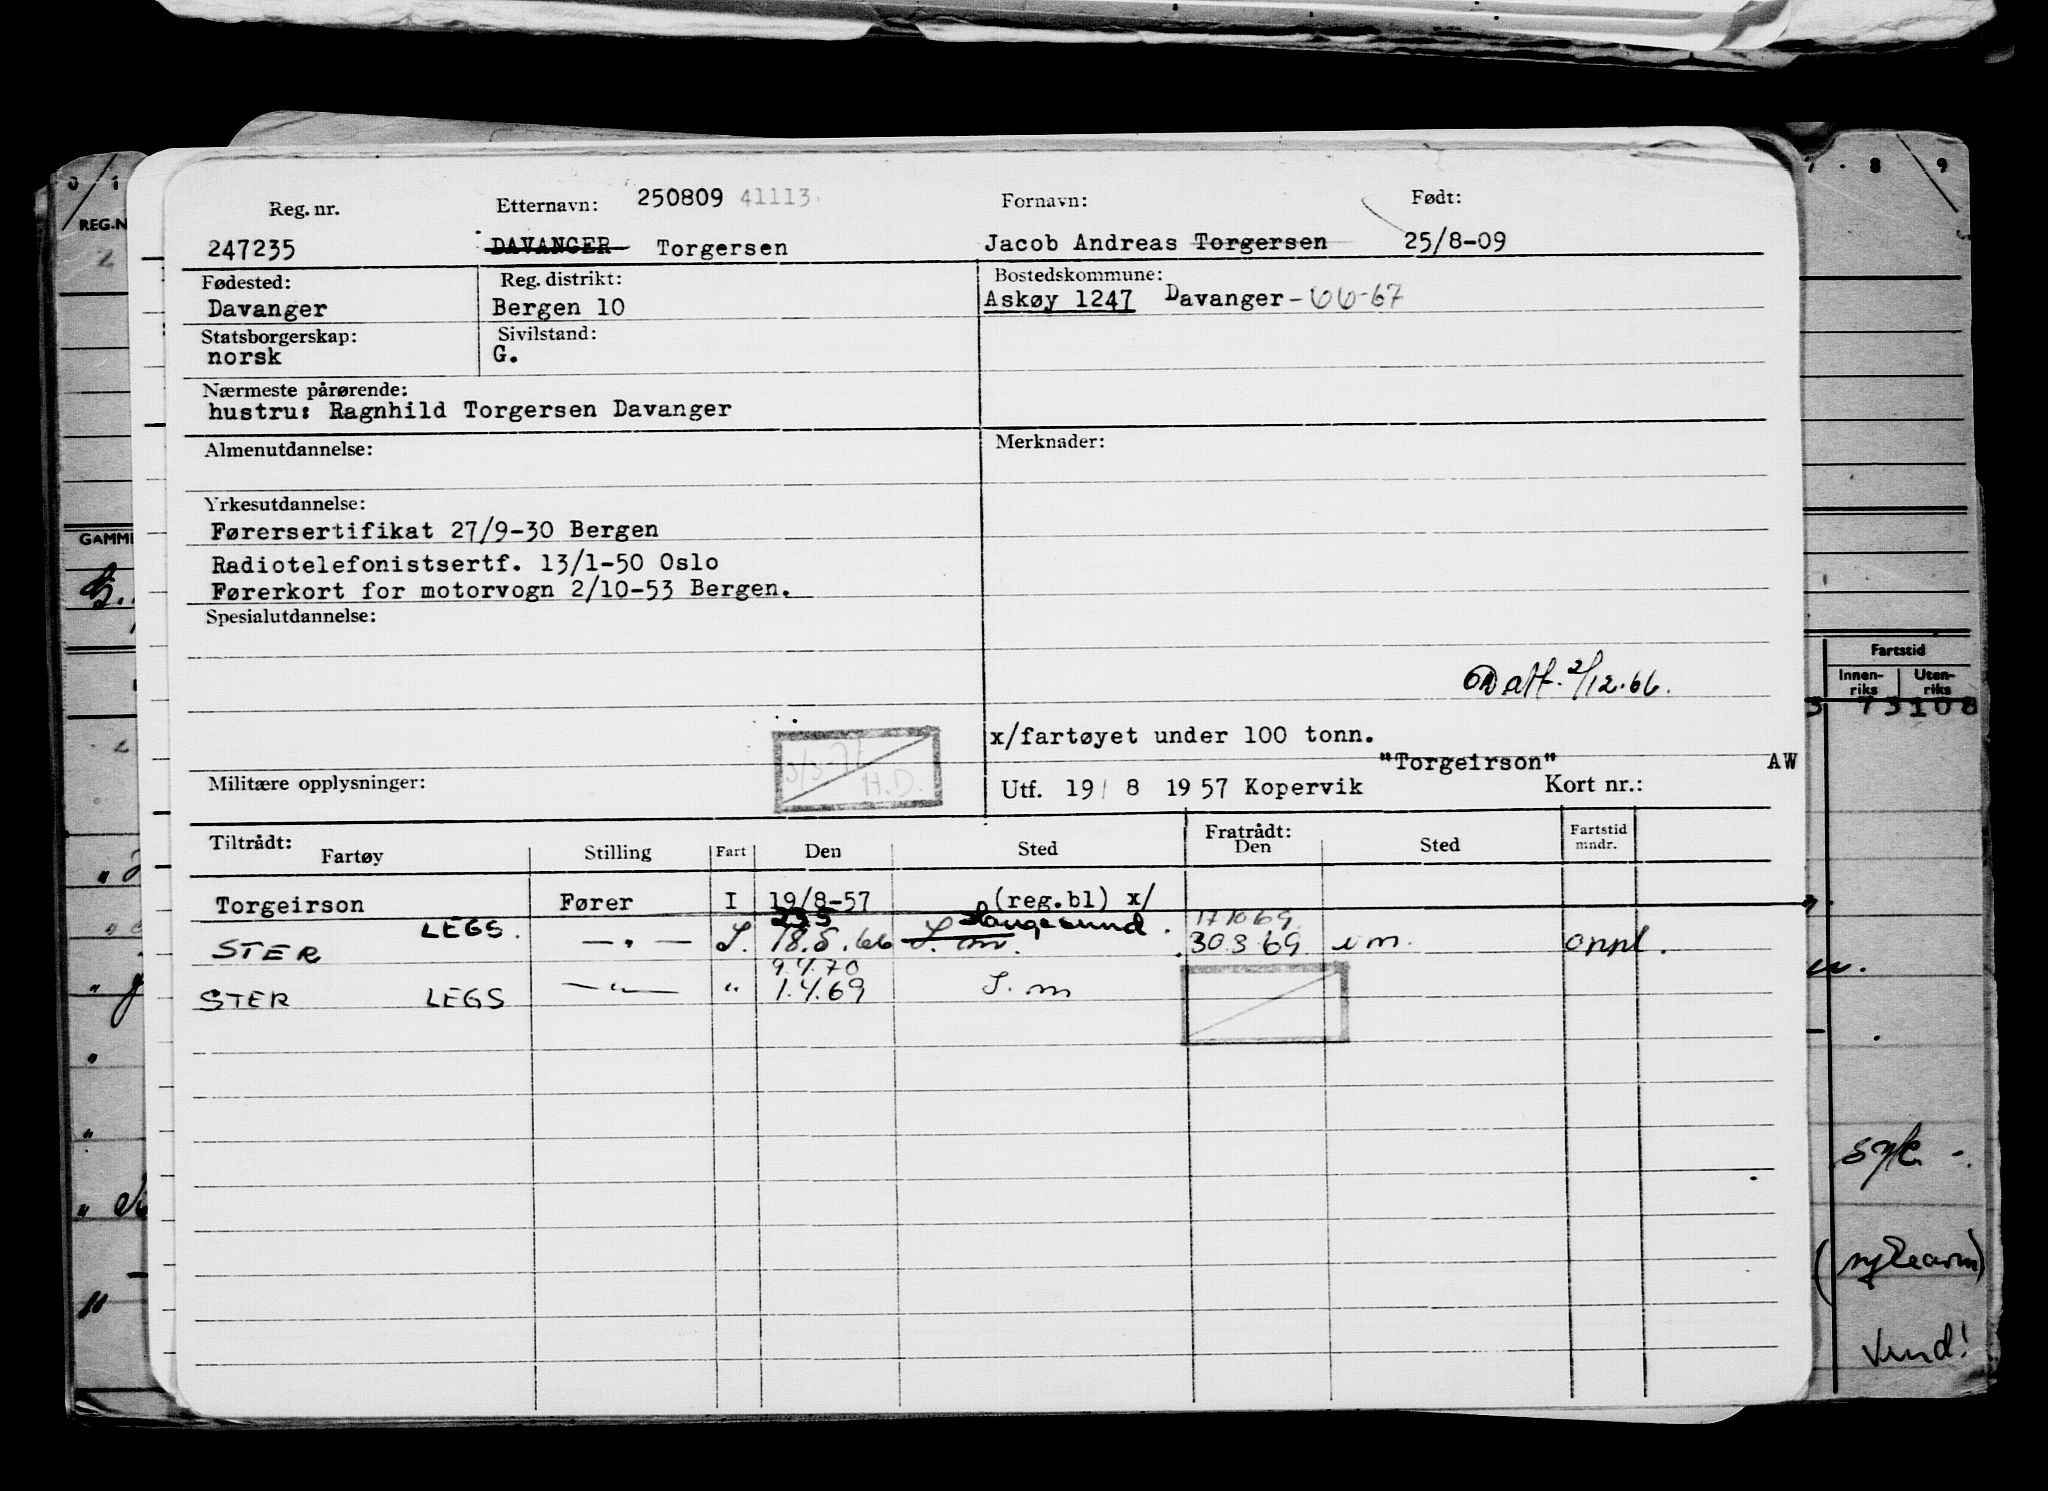 0 1
8 9
REG.N
Reg. nr. Etternavn: 250809 41113. Fornavn: Født:
247235 DAVANGER Torgersen Jacob Andreas Torgersen 25/8-09
Fødested: Reg. distrikt: Bostedskommune:
Davanger Bergen 10 Askøy 1247 Davanger - 66-67
Statsborgerskap: Sivilstand:
norsk G.
Nærmeste pårørende:
hustru: Ragnhild Torgersen Davanger
Almenutdannelse: Merknader:
Yrkesutdannelse:
Førersertifikat 27/9-30 Bergen
GAMME
Radiotelefonistsertf. 13/1-50 Oslo
Førerkort for motorvogn 2/10-53 Bergen.
Spesialutdannelse:
Fartstid
Innen-riks Uten-riks
2/12.66.
x/fartøyet under 100 tonn.
"Torgeirson" AW
H.D.
Militære opplysninger: Utf. 19/ 8 1957 Kopervik Kort nr.:
Tiltrådt: Fratrådt: Fartstid
Fartøy Stilling Fart Den Sted Den Sted mndr.
Torgeirson Fører I 19/8-57 (reg.bl) x/
23.5 Haugesund. 17.10.69
STER LEGS. — " — S. 18.5.66 S. m. 30.3.69 u m. oppl.
9.4.70
STER LEGS — " — " 1.4.69 S. m
syk -.
Vend!